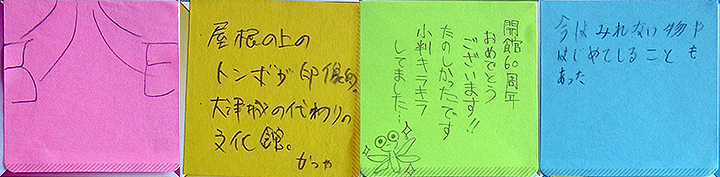 屋根の上の
トンボが印像的。
大津城の代わりの
文化館。
かつや
開館60周年
おめでとう
ございます!!
たのしかったです
小判キラキラ
してました…
今はみれない物や
はじめてしることも
あった